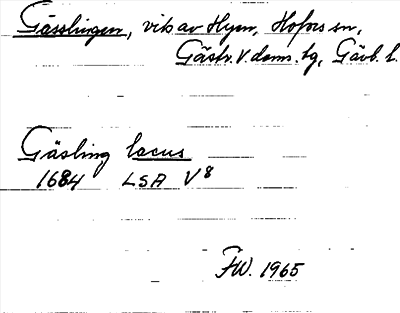 Gässlingen, vik av Hyen, Hofors sn,
Gästr. V. doms. tg, Gävb. l.
Gäsling lacus
1684 LSA V8
FW. 1965